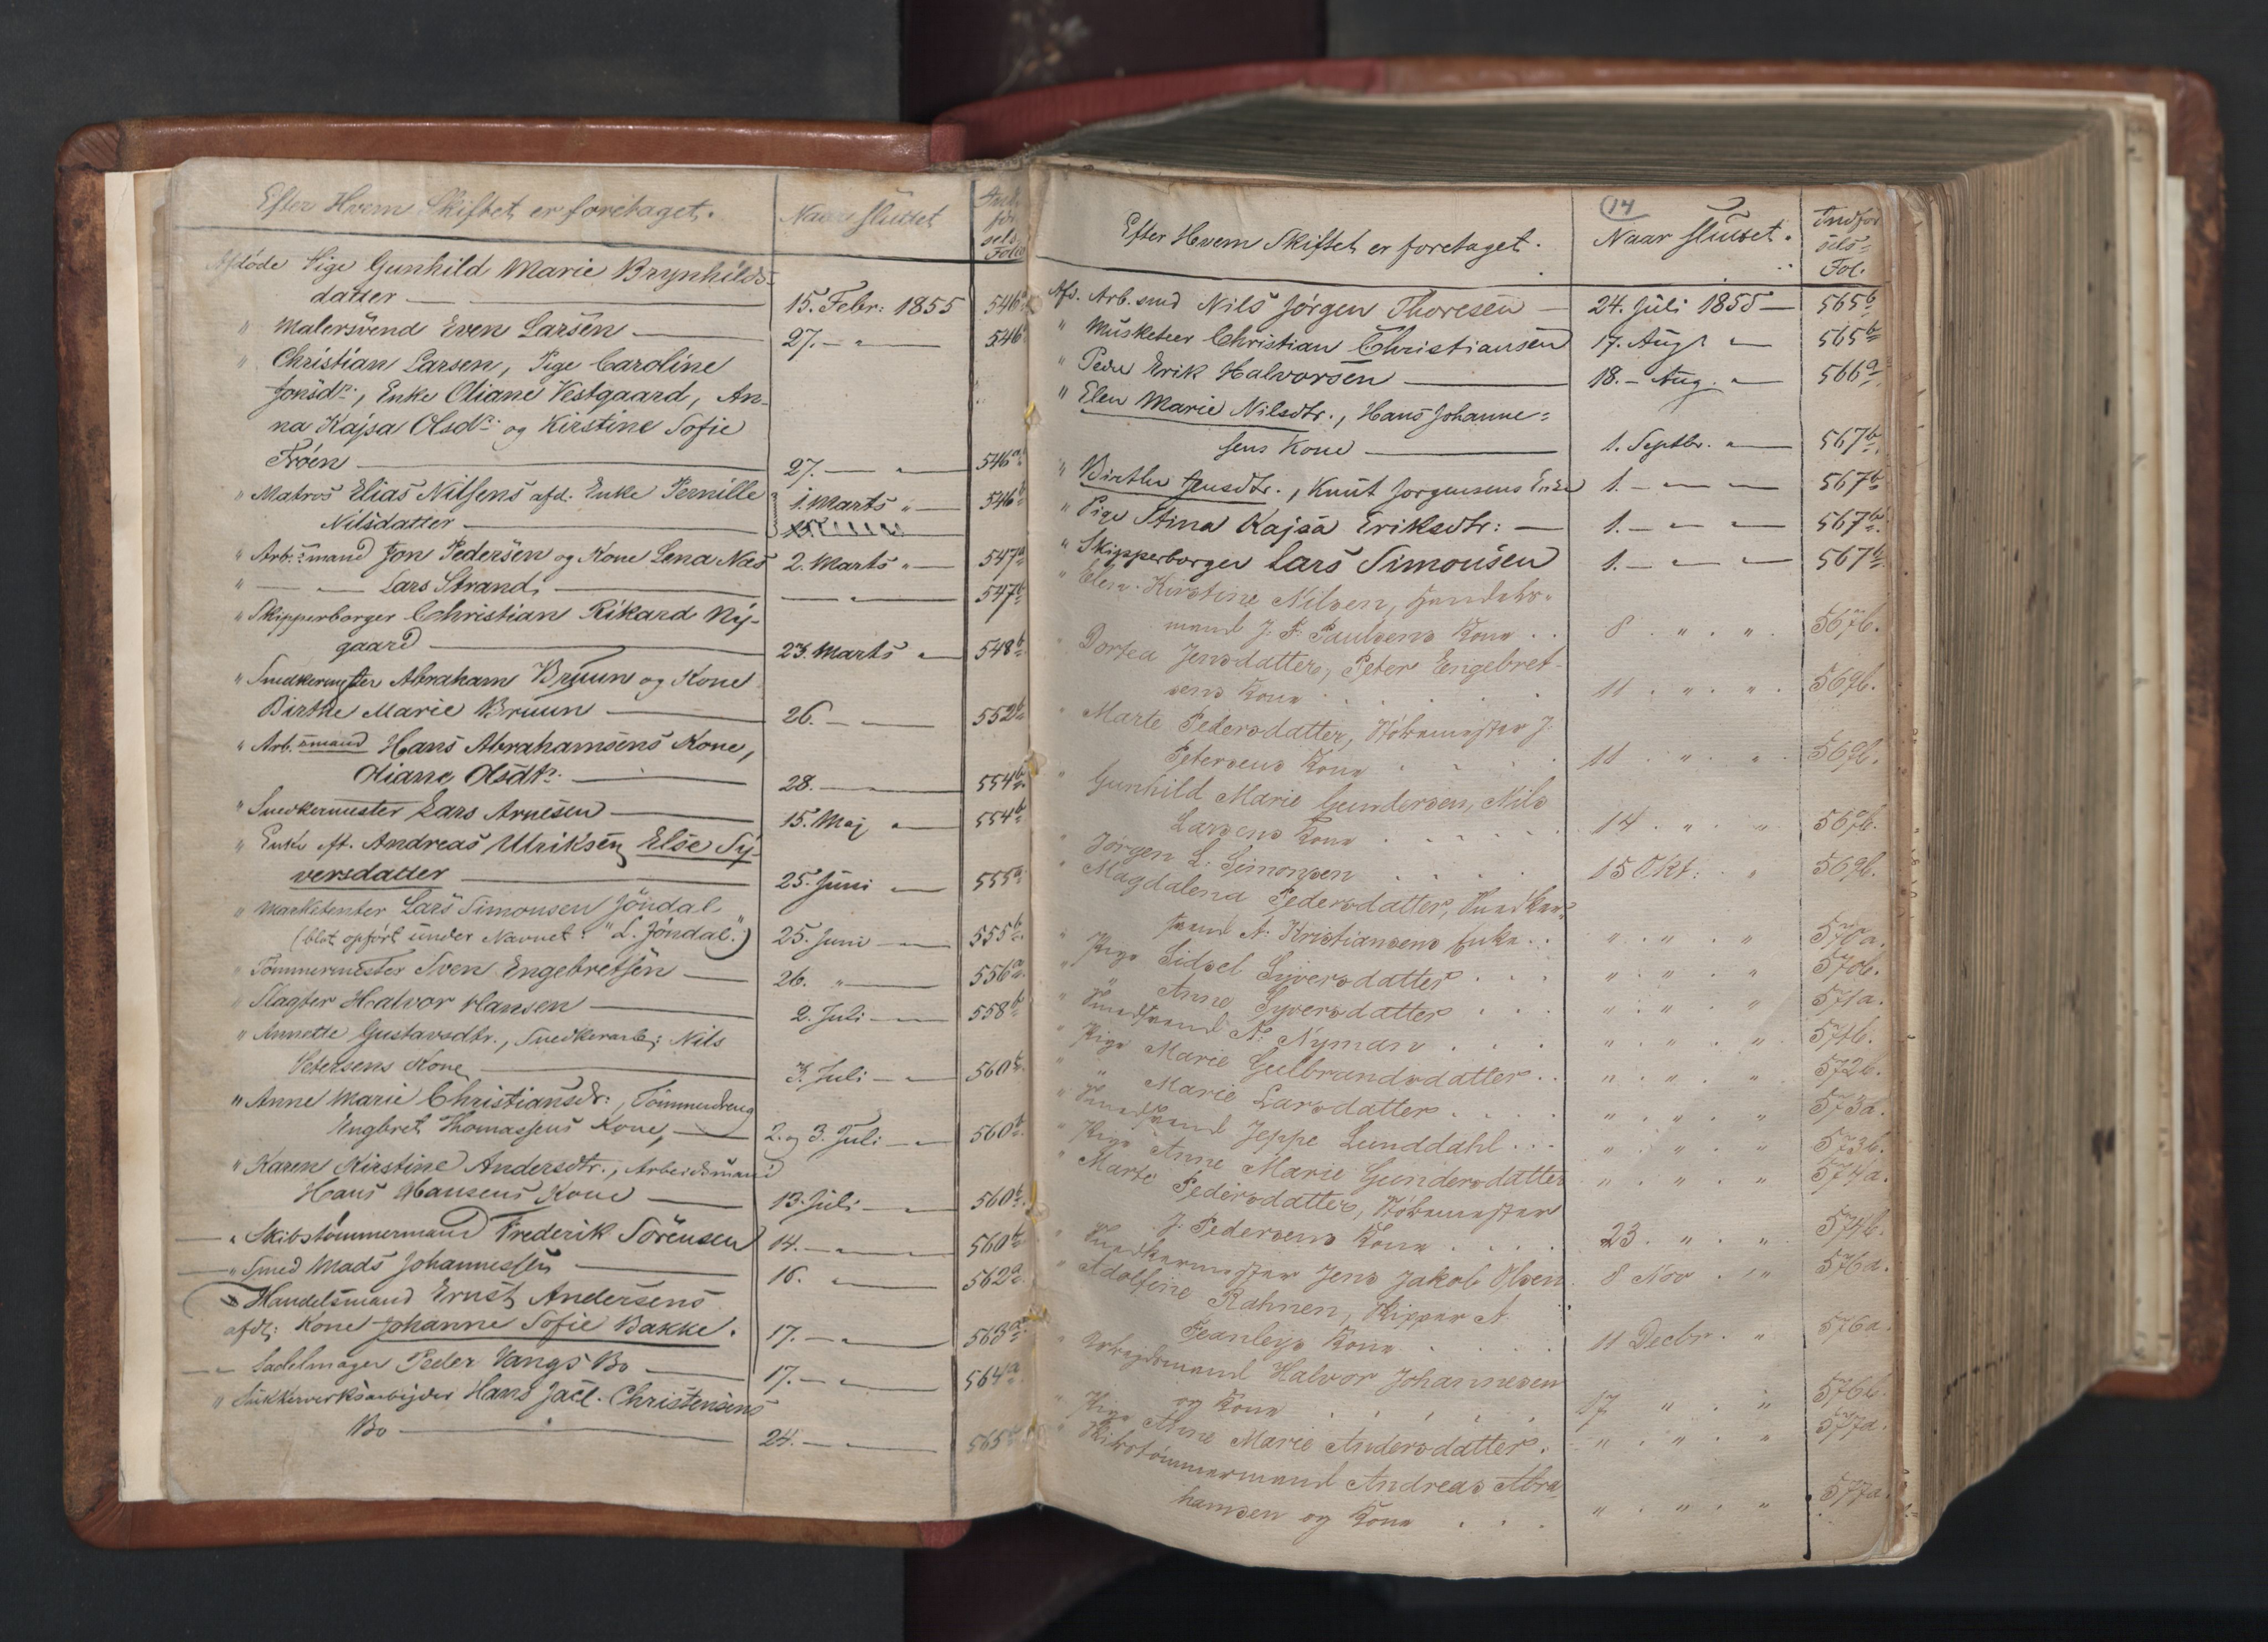 Efter Hvem Skiftet er foretaget. Naar sluttet Indførsels Folio
Afdøde Pige Gunhild Marie Brynhilds-
datter — 15. Febr: 1855 546a
" Malersvend Even Larsen — 27. — " — 546
" Christian Larsen, Pige Caroline
Jonsdr., Enke Oliane Vestgaard, An-
na Kajsa Olsdr. og Kirstine Sofie
Frøen — 27. — " — 546a
" Matros Elias Nilsens afd. Enke Pernille 1. Marts " — 546b
Nilsdatter —
" Arb.smand Jon Pedersen og Kone Lena Næs 2. Marts " — 547a
" — " — Lars Strand — — " — 547b
" Skipperborger Christian Rikard Ny-
gaard — 23. Marts " — 548b
" Snedkermester Abraham Bruun og Kone
Birthe Marie Bruun — 26. — " — 552b
" Arb.smand Hans Abrahamsens Kone,
Oliane Olsdtr. — 28. — " — 554b
" Snedkermester Lars Arnesen — 15. Maj " — 554b
" Enke eft. Andreas Ulriksen, Else Sy-
versdatter — 25. Juni " — 555a
" Marketenter Lars Simonsen Jøndal
(blot opført under Navnet: "L. Jøndal.") 25. Juni — " — 555b
" Tømmermester Sven Engebretsen — 26. " — 556a
" Slagter Halvor Hansen — 2. Juli — " — 558b
" Annette Gustavsdtr., Snedkerarb: Nils
Petersens Kone — 3. Juli — " — 560b
" Anne Marie Christiansdr:, Tømmerdreng
Engbret Thomassens Kone, — 2. og 3. Juli — " — 560b
" Karen Kirstine Andersdtr., Arbeidsmand
Hans Hansens Kone — 13. Juli — " — 560b
— " Skibstømmermand Frederik Sørensen 14. — " — 560b
— " Smed Mads Johannessen — 16. — " — 562a
Handelsmand Ernst Andersens
afd: Kone Johanne Sofie Bakke. 17. — " — 563a
— " Sadelmager Peder Vangs Bo — 17. — " — 564a
" Sukkerverksarbejder Hans Jacl. Christensens
Bo — 24. — " — 565
14
Efter Hvem Skiftet er foretaget. Naar sluttet. Indførsels Fol.
Afd. Arb.smd Nils Jørgen Thoresen — 24. Juli 1855 — 565b
" Musketeer Christian Christiansen 17. Aug. " — 565b
" Peder Erik Halvorsen — 18. – Aug. " — 566a
" Elen Marie Nilsdtr., Hans Johanne=
sens Kone — 1. Septbr. " — 567b
" Birthe Jensdtr., Knut Jorgensens Enke 1. — " — 567b
" Pige Stina Kajsa Eriksdtr: — 1. — " — 567b
" Skipperborger Lars Simonsen 1. — " — 567b
" Elen Kirstine Nilsen, Handels-
mand J. F. Paulsens Kone . . 8 . " . " . 567b.
" Dortea Jensdatter, Peter Engebret-
sens Kone . . . 11 . " . " . 569b.
" Marte Pedersdatter, Bødkermester J.
Petersens Kone . . . 11 . " . " . 569b.
" Gunhild Marie Gundersen, Nils
Larsens Kone . . . 14 . " . " 569b.
" Jørgen L. Simonsen . . . 15 Okt: . " 569b.
" Magdalena Pedersdatter, Snedker-
svend A. Kristiansens Enke . . " . " . " 570a.
" Pige Sidsel Syversdatter . . . " . " . " 570b.
" " Anne Syversdatter . . . " . " . " 571a.
" Smedsvend N. Nyman . . . " . " . " 571b.
" Pige Marie Gulbrandsdatter . . " . " . " 572b.
" " Marie Larsdatter . . . " . " . " 573a.
" Smedsvend Jeppe Lunddahl . . . " . " . " 573b.
" Pige Anne Marie Gundersdatter " . " . " 574a.
" Marte Pedersdatter, Bødkermester
J. Pedersens Kone . . . 23 . " . " 574b.
" Snedkermester Jens Jakob Olsen. 8 Nov . " 576a.
" Adolfine Rahmen, Skipper A.
Feanleys Kone . . . 11 Decbr. " 576a.
" Arbejdsmand Halvor Johannesen
og Kone . . . 17 " . " 576b.
" Pige Anne Marie Andersdatter. " . " . " 577a.
" Skibstømmermand Andreas Abra-
hamsen og Kone . . . " . " . " 577a.